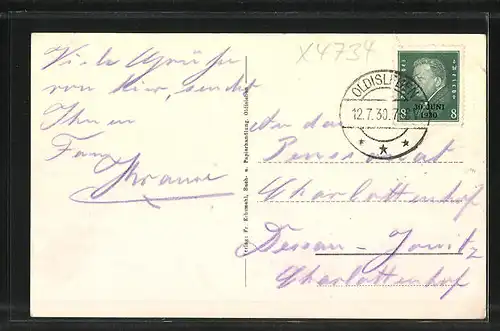 X4734
Viele Grüße
von hier, sendet
Ihnen
Fam.
Krause
OLDISLEBEN
12.7.30.7
30. JUNI
1930
8 8
An das
Pensionat
Charlottenhof
Dessau-Jonitz
Charlottenhof
Verlag: Fr. Schumohl, Buch- u. Papierhandlung, Oldisleben